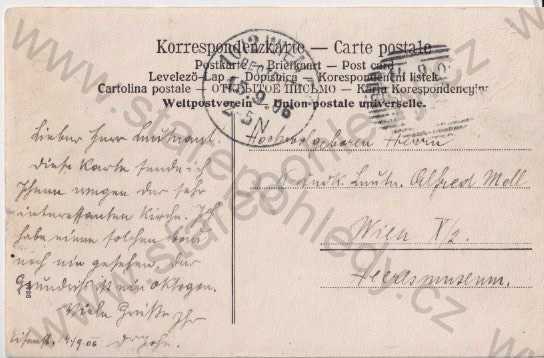 Korrespondenzkarte — Carte postale
Postkarte — Briefkaart — Post card
Levelező-Lap — Dopisnica — Korespondenční lístek
Cartolina postale — ОТКРЫТОЕ ПИСЬМО — Karta Korespondencyjna
Weltpostverein — Union postale universelle.
Lieber Herr Leutnant.
Diese Karte sende ich
Ihnen wegen der sehr
interessanten Kirche. Ich
habe einen solchen
noch nie gesehen, der
Grundriss ist ein Oktogon.
Viele Grüße Ihr
4/9 06
Hochwohlgeboren Herrn
Leutn. Alfred Mell
Wien
Heeresmuseum.
9.06
www.starepohledy.cz